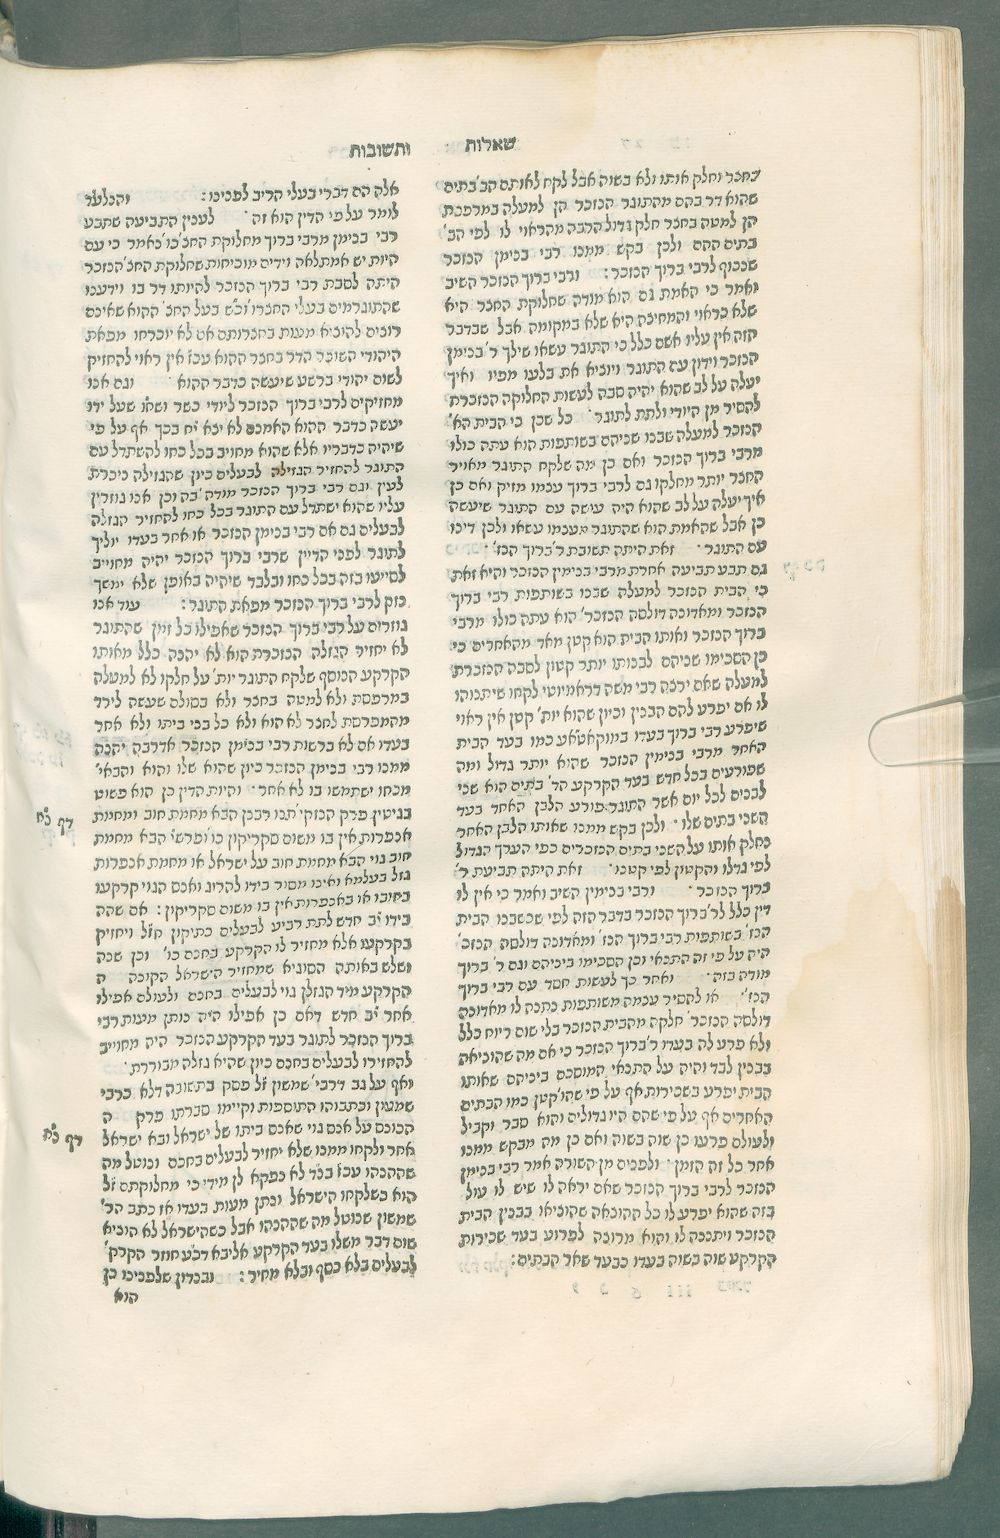 שאלות ותשובות
בחצר וחלק אותו ולא בשוה אבל לקח לאותם הב׳ בתים
שהוא דר בהם מהתוגר הנזכר הן למעלה במרפסת
הן למטה בחצר חלק גדול הרבה מהראוי לו לפי הב׳
בתים ההם ולכן בקש ממנו רבי בנימן הנזכר
שיכוף לרבי ברוך הנזכר: ורבי ברוך הנזכר השיב
ואמר כי האמת גם הוא מודה שחלוקת החצר היא
שלא כראוי והמחיצה היא שלא במקומה אבל שבדבר
הזה אין עליו אשם כלל כי התוגר עשאו שילך ר׳ בנימן
הנזכר וידון עם התוגר ויוציא את בלעו מפיו ואיך
יעלה על לב שהוא יהיה סבה לעשות החלוקה הנזכרת
להסיר מן היודי ולתת לתוגר׳ כל שכן כי הבית הא׳
הנזכר למעלה שבנו שניהם בשותפות הוא עתה כולו
מרבי ברוך הנזכר ואם כן מה שלקח התוגר מאויר
החצר יותר מחלקו גם לרבי ברוך עצמו מזיק ואם כן
איך יעלה על לב שהוא היה עושה עם התוגר שיעשה
כן אבל שהאמת הוא שהתוגר מעצמו עשאו ולכן דינו
עם התוגר׳ זאת היתה תשובת ר׳ ברוך הנז׳:
גם תבע תביעה אחרת מרבי בנימין הנזכר והיא זאת
כי הבית הנזכר למעלה שבנו בשותפות רבי ברוך
הנזכר ומאדונה דולסה הנזכר׳ הוא עתה כולו מרבי
ברוך הנזכר ואותו הבית הוא קטן מאד מהאחרים כי
כן הסכימו שניהם לבנותו יותר קטון לסבה הנזכרת
למעלה שאם ירצה רבי משה דראמיוטי לקחו שיתנוהו
לו אם יפרע להם הבנין וכיון שהוא יות׳ קטן אין ראוי
שיפרע רבי ברוך בעדו במוקאטאע כמו בעד הבית
האחר מרבי בנימין הנזכר שהוא יותר גדול ומה
שפורעים בכל חדש בעד הקרקע הד׳ בתים הוא שני
לבנים לכל יום אשר התוגר פורע הלבן האחד בעד
השני בתים שלו׳ ולכן בקש ממנו שאותו הלבן האחר
נחלק אותו על השני בתים הנזכרים כפי הערך הגדול
לפי גדלו והקטון לפי קטנו׳ זאת היתה תביעת ר׳
ברוך הנזכר׳ ורבי בנימין השיב ואמר כי אין לו
דין כלל לר׳ ברוך הנזכר בדבר הזה לפי שכשבנו הבית
הנז׳ בשותפות רבי ברוך הנז׳ ומאדונה דולסה הנזכ׳
היה על פי זה התנאי וכן הסכימו ביניהם וגם ר׳ ברוך
מודה בזה׳ ואחר כך לעשות חסד עם רבי ברוך
הנז׳ או להסיר עצמה משותפות נתנה לו מאדונה
דולסה הנזכר׳ חלקה מהבית הנזכר בלי שום ריוח כלל
ולא פרע לה בעדו ר׳ ברוך הנזכר כי אם מה שהוציאה
בבנין לבד והיה על התנאי המוסכם ביניהם שאותו
הבית יפרע בשכירות אף על פי שהו׳ קטן כמו הבתים
האחרים אף על פי שהם היו גדולים והוא סבר וקביל
ולעולם פרעו כן שוה בשוה ואם כן מה מבקש ממנו
אחר כל זה הזמן׳ ולפנים מן השורה אמר רבי בנימין
הנזכר לרבי ברוך הנזכר שאם יראה לו שיש לו עול
בזה שהוא יפרע לו כל ההוצאה שהוציאו בבנין הבית
הנזכר ויתננה לו והוא מרוצה לפרוע בעד שכירות
הקרקע שוה בשוה בעדו כבעד שאר הבתים:
אלה הם דברי בעלי הריב לפנינו: והנלע״ד
לומר על פי הדין הוא זה׳ לענין התביעה שתבע
רבי בנימן מרבי ברוך מחלוקת החצ׳ כו׳ נאמר כי עם
היות יש אמתלאה וידים מוכיחות שחלוקת החצ׳ הנזכר
היתה לסבת רבי ברוך הנזכר להיותו דר בו וידענו
שהתוגרמים בעלי החצרו׳ וכ״ש בעל החצ׳ ההוא שאינם
רוצים להוציא מעות בחצרותם אם לא יוכרחו מפאת
היהודי השוכר הדר בחצר ההוא עכ״ז אין ראוי להחזיק
לשום יהודי ברשע שיעשה כדבר ההוא׳ וגם אנו
מחזיקים לרבי ברוך הנזכר ליודי כשר ושח״ו שעל ידו
יעשה כדבר ההוא האמנם לא יצא י״ח בכך אף על פי
שיהיה כדבריו אלא שהוא מחויב בכל כחו להשתדל עם
התוגר להחזיר הגזילה לבעלים כיון שהגזילה ניכרת
לעין וגם רבי ברוך הנזכר מודה בה וכן אנו גוזרין
עליו שהוא ישתדל עם התוגר בכל כחו להחזיר הגזלה
לבעלים גם אם רבי בנימן הנזכר או אחר בעדו יוליך
לתוגר לפני הדיין שרבי ברוך הנזכר יהיה מחוייב
לסייעו בזה בכל כחו ובלבד שיהיה באופן שלא ימשך
נזק לרבי ברוך הנזכר מפאת התוגר: עוד אנו
גוזרים על רבי ברוך הנזכר שאפילו כל זמן שהתוגר
לא יחזיר הגזלה הנזכרת הוא לא יהנה כלל מאותו
הקרקע הנוסף שלקח התוגר יות׳ על חלקו לא למעלה
במרפסת ולא למטה בחצר ולא בסולם שעשה לירד
מהמפרסת לחצר לא הוא ולא כל בני ביתו ולא אחר
בעדו אם לא ברשות רבי בנימן הנזכר אדרבה יהנה
ממנו רבי בנימן הנזכר כיון שהוא שלו והוא והבאי׳
מכחו ישתמשו בו לא אחר׳ והיות הדין כן הוא פשוט
בגיטין פרק הנזקי׳ תנו רבנן הבא מחמת חוב ומחמת
אנפרות אין בו משום סקריקון כו׳ ופרש״י הבא מחמת
חוב גוי הבא מחמת חוב על ישראל או מחמת אנפרות
גזל בעלמא ואינו מסור בידו להרוג ואנסם הגוי קרקעו
בחובו או באנפרות אין בו משום סקריקון: אם שהה
בידו י״ב חדש לתת רביע לבעלים כתיקון חז״ל ויחזיק
בקרקעו אלא מחזיר לו הקרקע בחנם כו׳ וכן שנה
ושלש באותה הסוגיא שמחזיר הישראל הקונה ה
הקרקע מיד הגזלן גוי לבעלים בחנם ולעולם אפילו
אחר י״ב חדש דאם כן אפילו היה נותן מעות רבי
ברוך הנזכר לתוגר בעד הקרקע הנזכר היה מחוייב
להחזירו לבעלים בחנם כיון שהיא גזלה מבוררת׳
ואף על גב דרבי׳ שמשון ז״ל פסק בתשובה דלא כרבי
שמעון וכתבוהו התוספות וקיימו סברתו פרק ה
הכונס על אנס גוי שאנס ביתו של ישראל ובא ישראל
אחר ולקחו ממנו שלא יחזיר לבעלים בחנם ונוטל מה
שההנהו עכ״ז בנ״ד לא נפקא לן מידי כי מחלוקתם ז״ל
הוא כשלקחו הישראל ונתן מעות בעדו אז כתב הר׳
שמשון שנוטל מה שההנהו אבל כשהישראל לא הוציא
שום דבר משלו בעד הקרקע אליבא דכ״ע חוזר הקרק׳
לבעלים בלא כסף ובלא מחיר: ובנדון שלפנינו כן
הוא
דף נ״ח
דף נ״ח